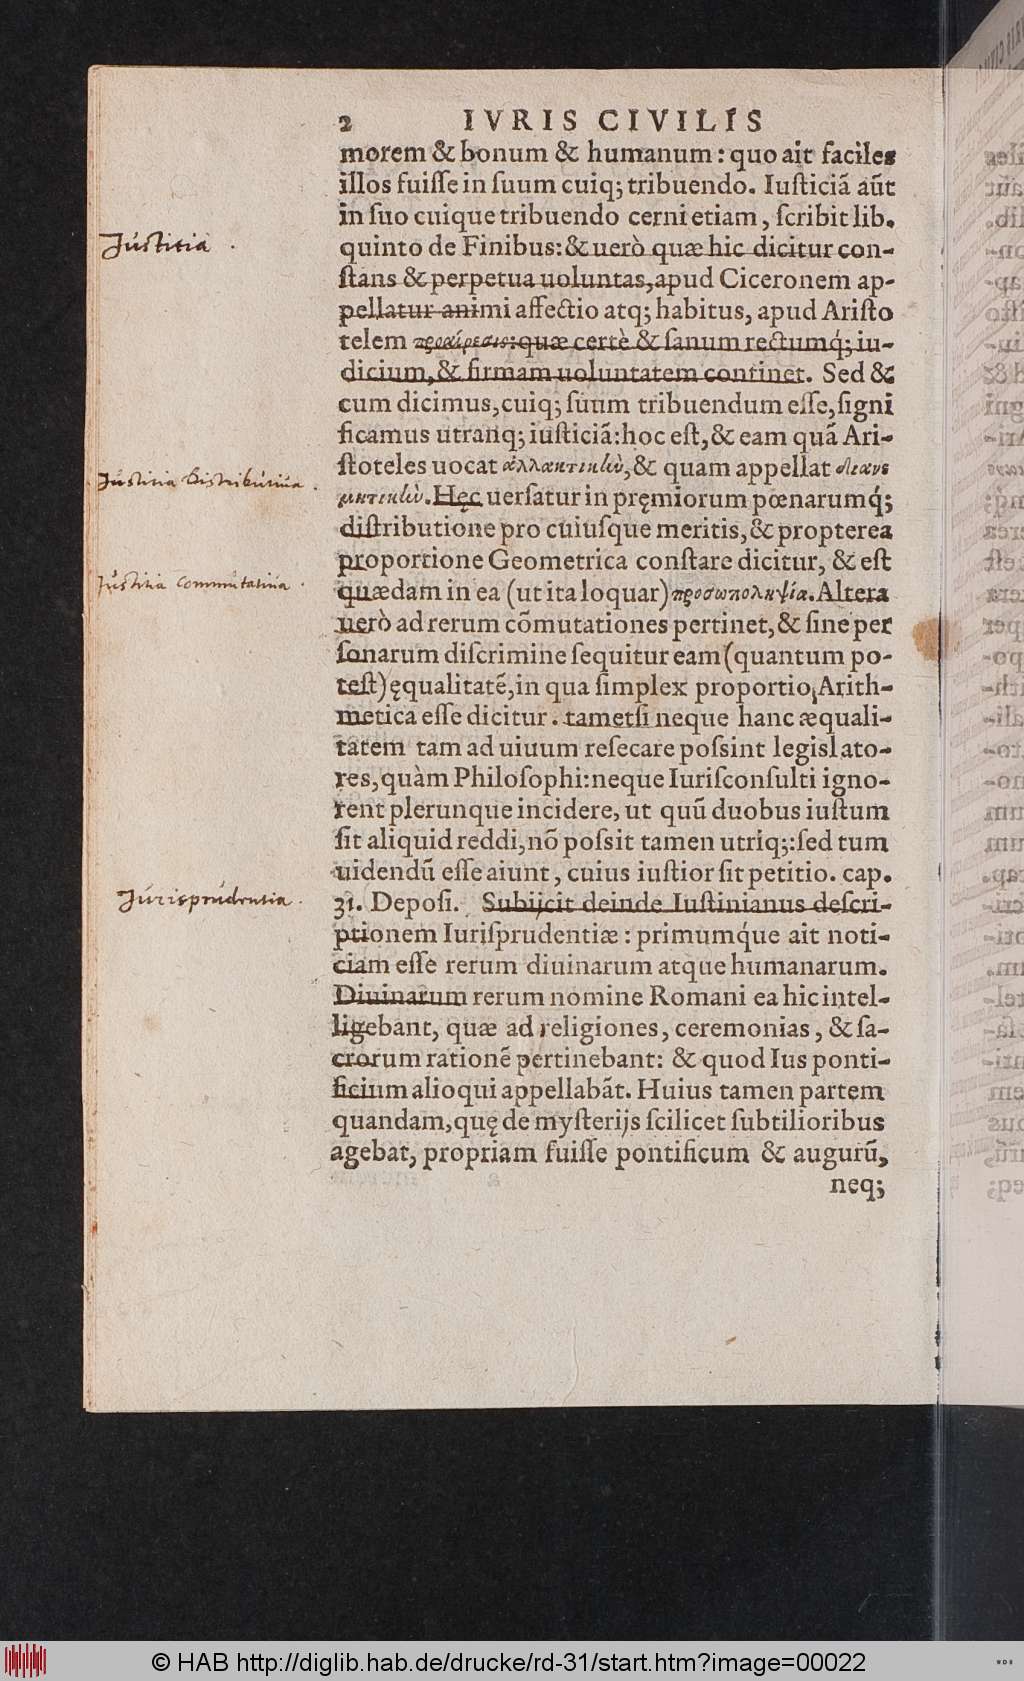 2 IVRIS CIVILIS
morem & bonum & humanum : quo ait faciles
illos fuiſſe in ſuum cuiq; tribuendo. Iuſticiã aũt
in ſuo cuique tribuendo cerni etiam, ſcribit lib.
Justitia .
quinto de Finibus: & uerò quæ hic dicitur con-
ſtans & perpetua uoluntas, apud Ciceronem ap-
pellatur animi affectio atq; habitus, apud Ariſto
telem προαίρεσις: quæ certè & ſanum rectumq́; iu-
dicium, & firmam uoluntatem continet. Sed &
cum dicimus, cuiq; ſuum tribuendum eſſe, ſigni
ficamus utranq; iuſticiã: hoc eſt, & eam quã Ari-
ſtoteles uocat ἀλλακτικὼ, & quam appellat διανε
Justitia Distributiua .
μητικὼ. Hęc uerſatur in pręmiorum pœnarumq́;
diſtributione pro cuiuſque meritis, & propterea
proportione Geometrica conſtare dicitur, & eſt
Justitia Commutatiua .
quædam in ea (ut ita loquar) προσωποληψία. Altera
uerò ad rerum cõmutationes pertinet, & ſine per
ſonarum diſcrimine ſequitur eam (quantum po-
teſt) ęqualitatẽ, in qua ſimplex proportio, Arith-
metica eſſe dicitur . tametſi neque hanc æquali-
tatem tam ad uiuum reſecare poſsint legislato-
res, quàm Philoſophi: neque Iuriſconſulti igno-
rent plerunque incidere, ut quũ duobus iuſtum
ſit aliquid reddi, nõ poſsit tamen utriq;: ſed tum
uidendũ eſſe aiunt, cuius iuſtior ſit petitio. cap.
Jurisprudentia .
31. Depoſi. Subijcit deinde Iuſtinianus deſcri-
ptionem Iuriſprudentiæ : primumq́ue ait noti-
ciam eſſe rerum diuinarum atque humanarum.
Diuinarum rerum nomine Romani ea hic intel-
ligebant, quæ ad religiones, ceremonias, & ſa-
crorum rationẽ pertinebant: & quod Ius ponti-
ficium alioqui appellabãt. Huius tamen partem
quandam, quę de myſterijs ſcilicet ſubtilioribus
agebat, propriam fuiſſe pontificum & augurũ,
neq;
© HAB http://diglib.hab.de/drucke/rd-31/start.htm?image=00022